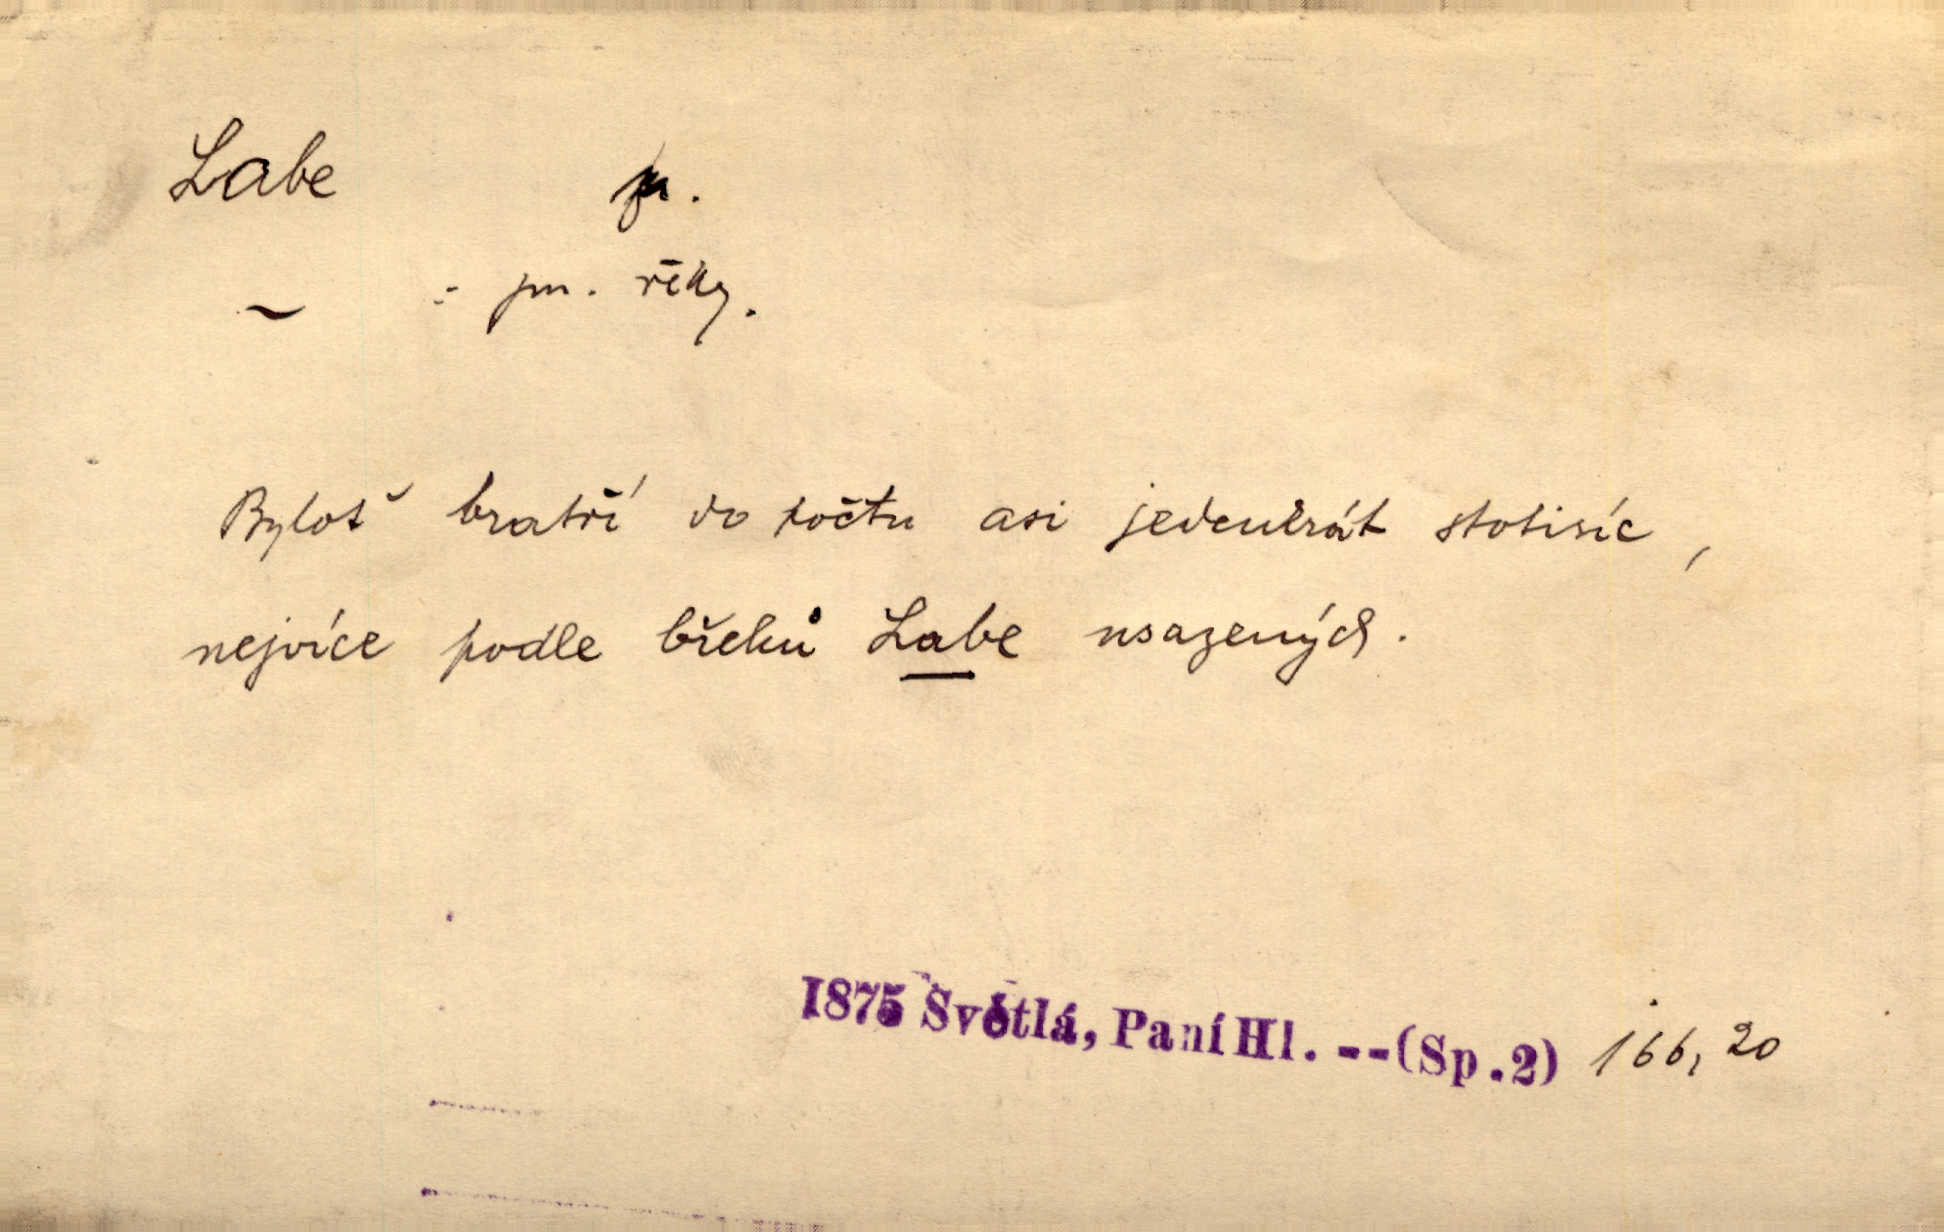 Labe
~ : jm. řeky.
Byloť bratří do počtu asi jedenkrát stotisíc,
nejvíce podle břehů Labe usazených.
1875 Světlá, Paní Hl. --(Sp.2) 166, 20